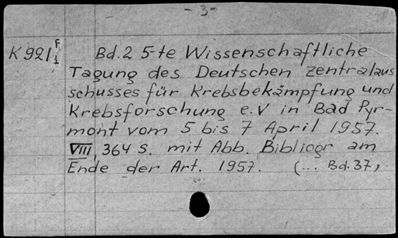 - 3 -
K 921 F/1 Bd.2 5-te Wissenschaftliche
Tagung des Deutschen Zentralaus
schusses für Krebsbekämpfung und
Krebsforschung e.V in Bad Pyr-
mont vom 5 bis 7 April 1957.
VIII, 364 S. mit Abb. Bibliogr am
Ende der Art. 1957. (... Bd. 37,